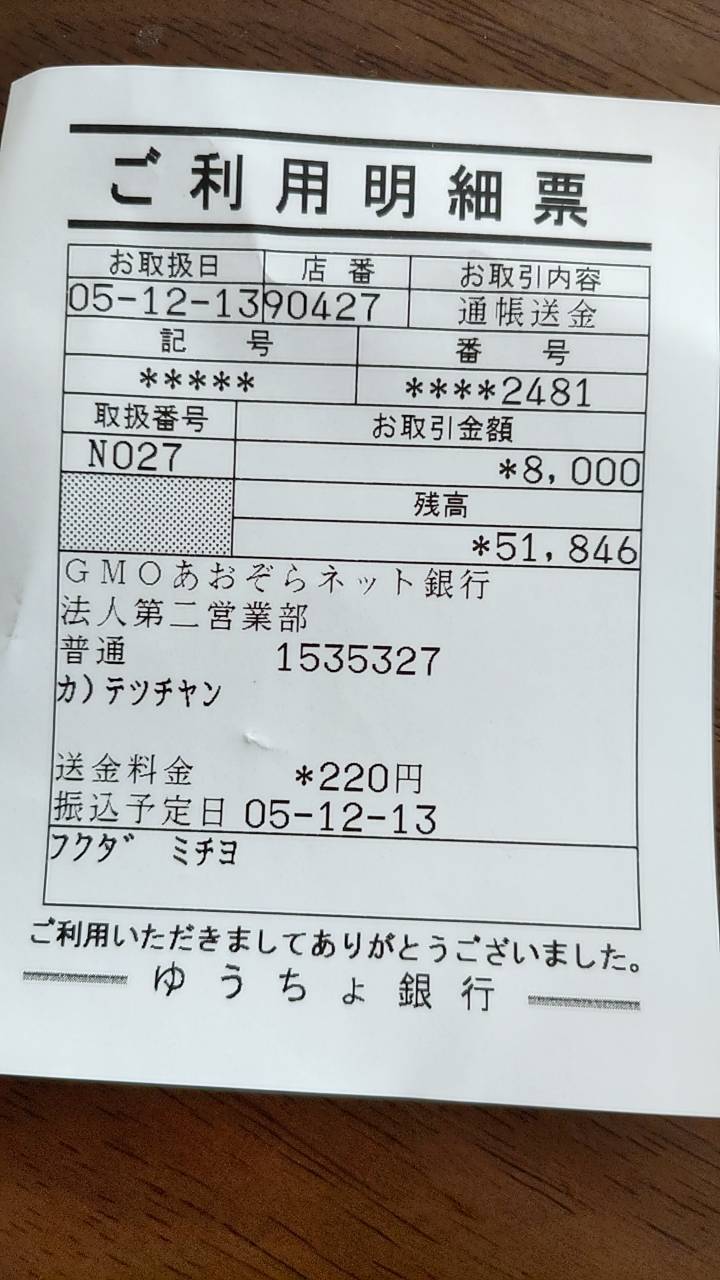 ご利用明細票
お取扱日 店番 お取引内容
05-12-13 90427 通帳送金
記号 番号
***** ****2481
取扱番号 お取引金額
N027 *8,000
残高
*51,846
GMOあおぞらネット銀行
法人第二営業部
普通 1535327
カ)テツチヤン
送金料金 *220円
振込予定日 05-12-13
フクダ゛ ミチヨ
ご利用いただきましてありがとうございました。
ゆうちょ銀行